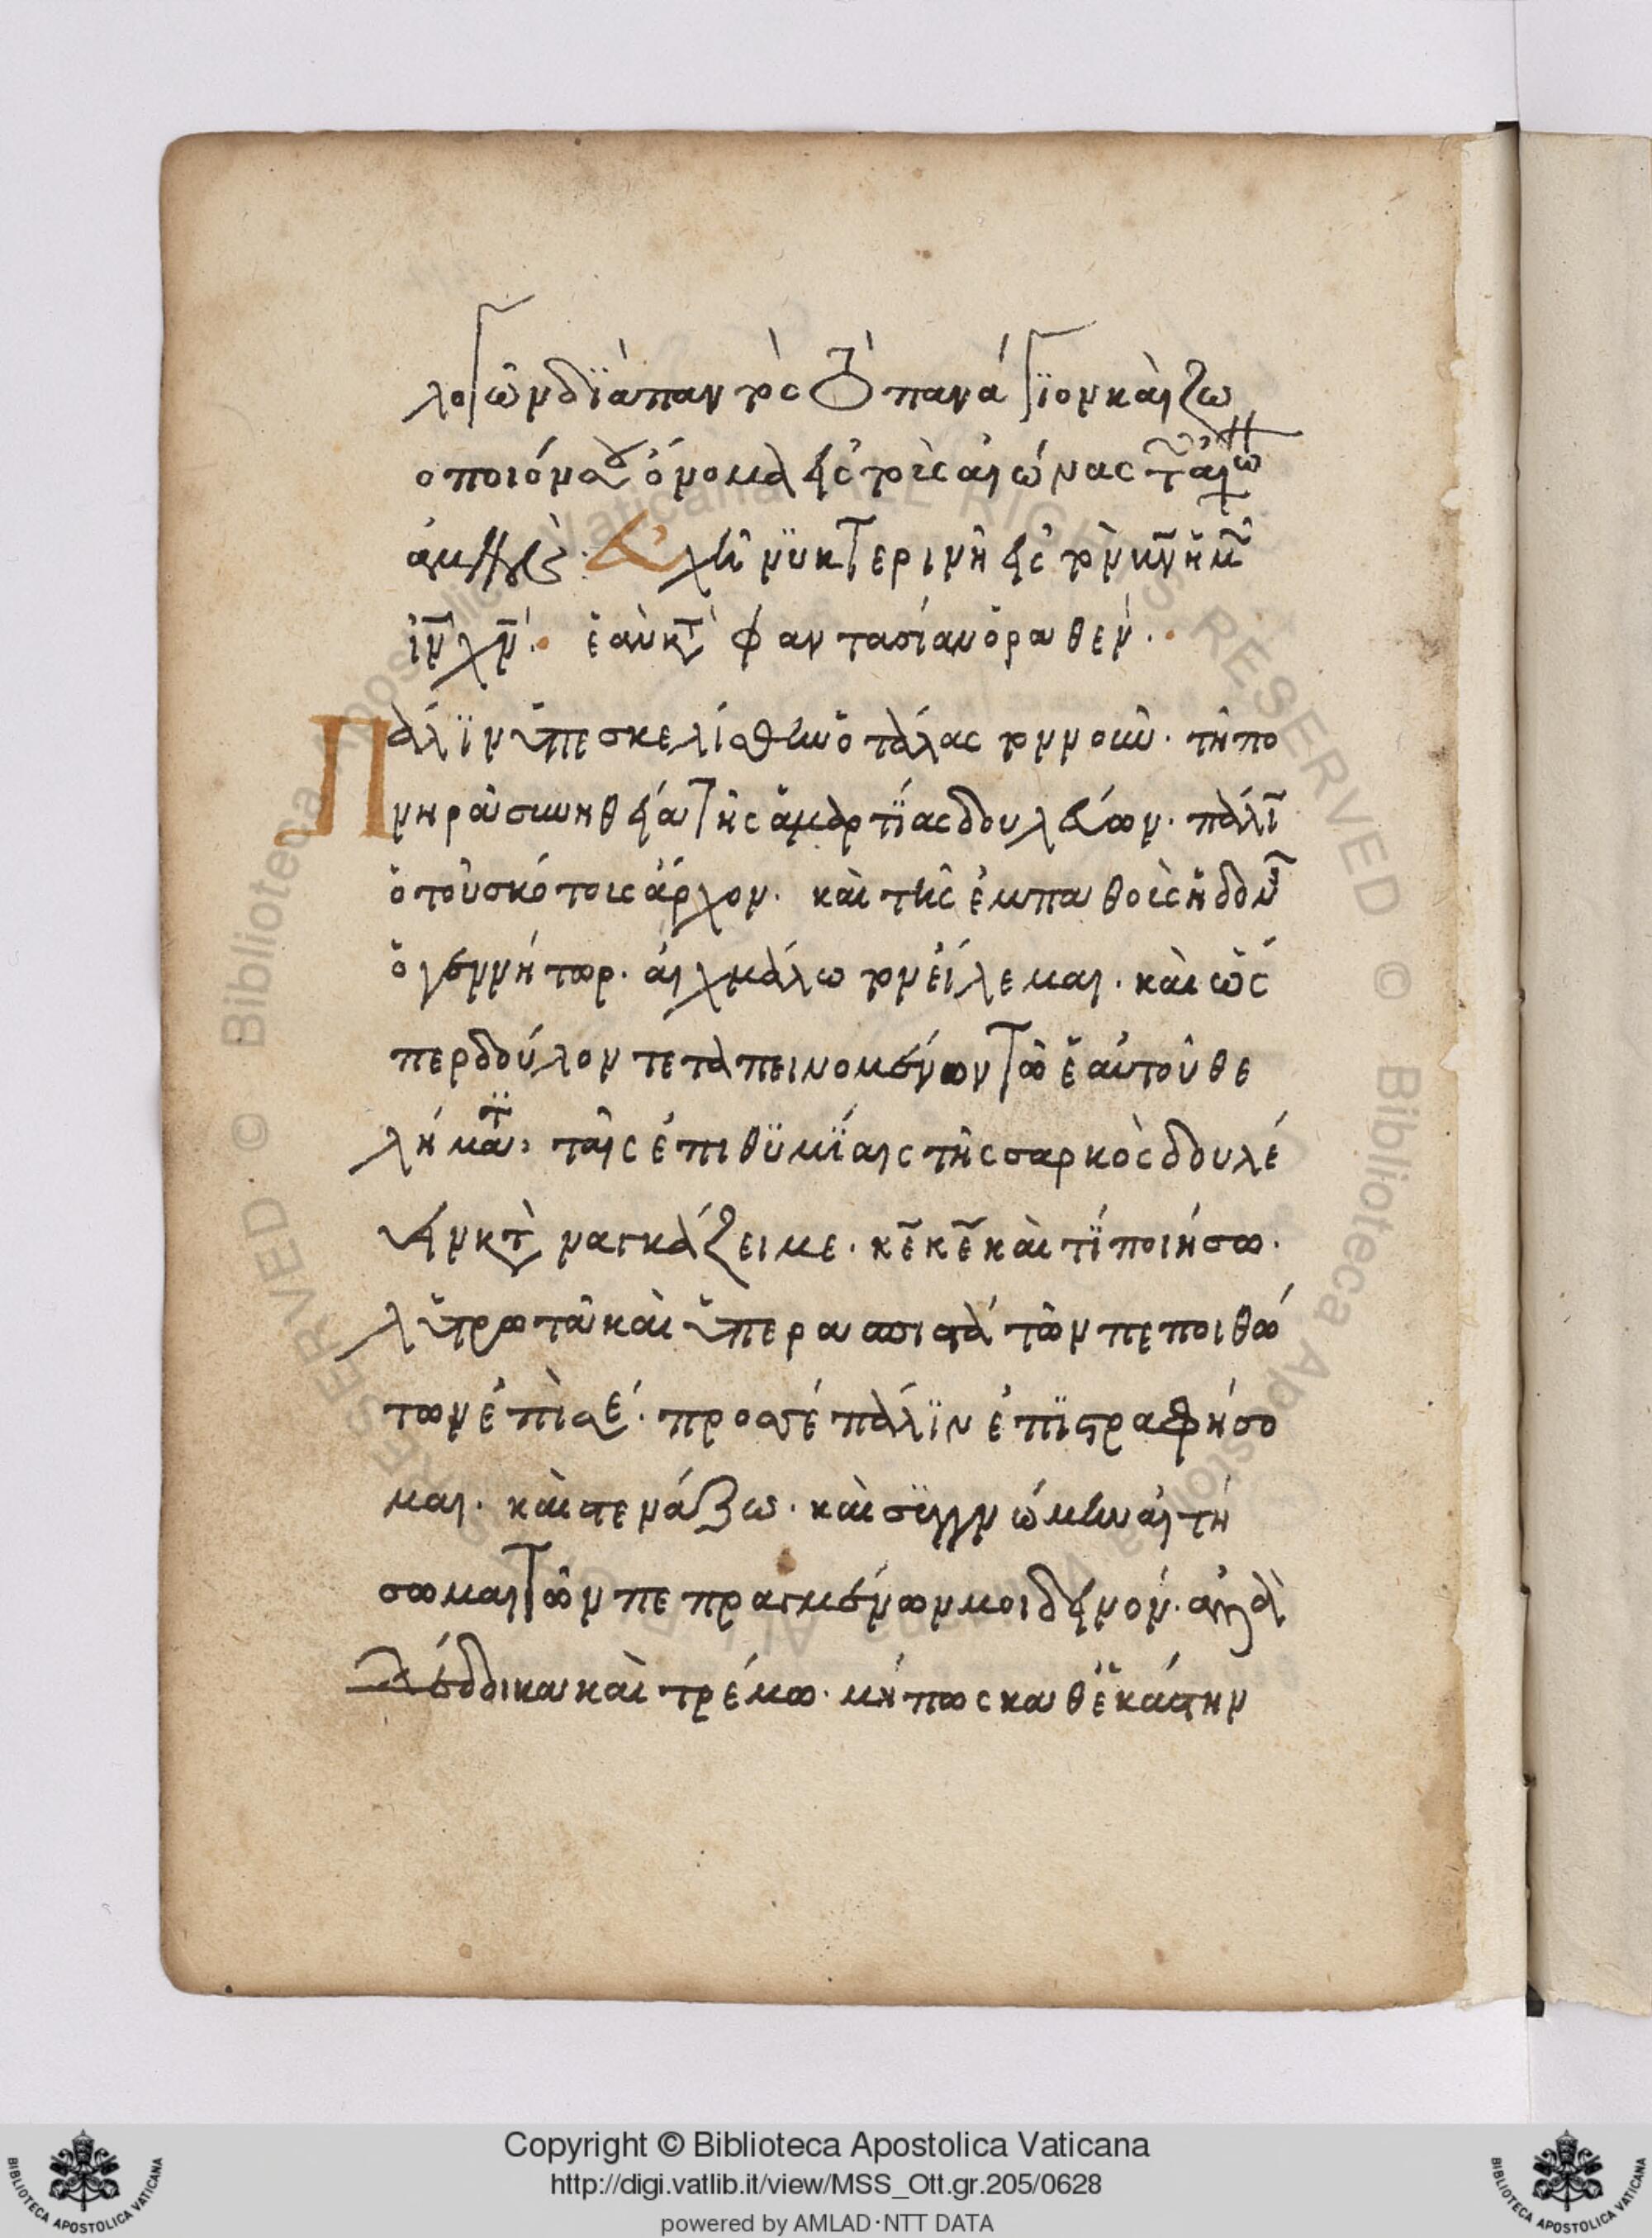 λογῶν δϊὰ παντὸς τὸ πανάγϊον καὶ ζω
οποιόν σου ὄνομα εἰς τοὺς αἰώνας τ̃ αἰώ
ἀμήν: Εὐχὴ νϋκτερινὴ εἰς τὸν κ̅ν̅ ἡμ̃
ι̅ν̅ χ̅ν̅· ἐὰν κτ̀ φαντασίαν ὅραθεν·
Πάλϊν ὑπεσκελίσθην ὁ τάλας τὸν νοῦν· τῆ πο
νηρᾶ συνηθεία τῆς ἁμαρτΐας δουλεύων· πάλϊ
ὁ τοῦ σκότους ἄρχον· καὶ τῆς ἐμπαθοὺς ἡδον̃
ὁ γεννήτωρ· αἰχμάλωτον εἵλε μαι· καὶ ὥς
περ δούλον τεταπεινομένων τῶ ἑαυτοῦ θε
λήματϊ, ταῖς ἐπιθϋμΐαις τῆς σαρκὸς δουλέ
υειν κτὰναγκάζει με· κ̅ε̅ κ̅ε̅ καὶ τΐ ποιήσω·
λϋτρωτᾶ καὶ ὑπερασπιστὰ τῶν πεποιθώ
των ἐπὶ σέ· προσσέ πάλϊν ἐπϊστραφήσο
μαι· καὶ στενάξω· καὶ σϋγγνώμην αἰτή
σωμαι τῶν πεπραγμένων μοι δεινόν· ἀλλὰ
δέδδικα καὶ τρέμω· μήπως καθἑκάστην
Copyright © Biblioteca Apostolica Vaticana
http://digi.vatlib.it/view/MSS_Ott.gr.205/0628
powered by AMLAD·NTT DATA